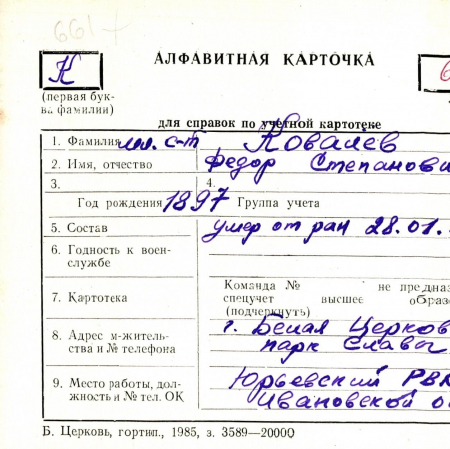 6617
АЛФАВИТНАЯ КАРТОЧКА
К
(первая бук-
ва фамилии)
для справок по учетной картотеке
1. Фамилия мл. с-т Ковалев
2. Имя, отчество Федор Степанови
3. 4.
Год рождения 1897 Группа учета
5. Состав умер от ран 28.01.
6. Годность к воен-
службе
Команда № не предназ
7. Картотека спецучет высшее образо
(подчеркнуть)
8. Адрес м-житель- г. Белая Церков
ства и № телефона парк Славы
9. Место работы, дол- Юрьевский РВК
жность и № тел. ОК Ивановской о
Б. Церковь, гортип., 1985, з. 3589—20000